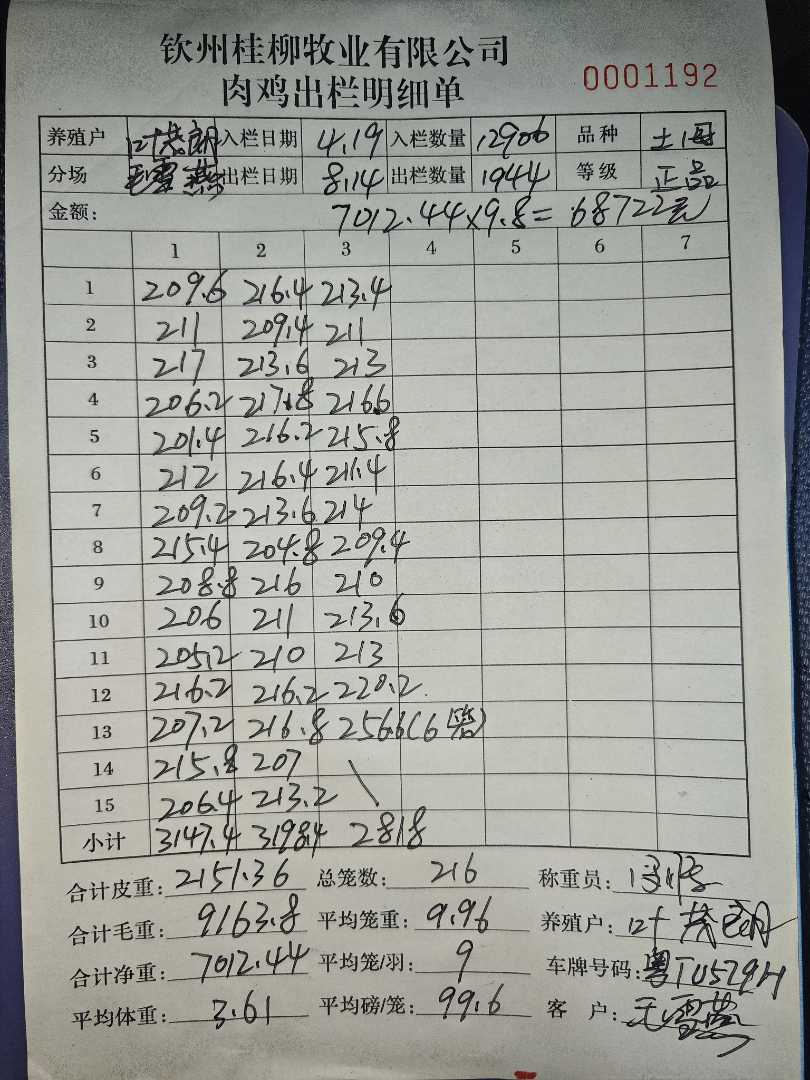 钦州桂柳牧业有限公司
肉鸡出栏明细单 0001192
养殖户 叶茂朗 入栏日期 4.19 入栏数量 12906 品种 土1母
分场 毛雪燕 出栏日期 8.14 出栏数量 1944 等级 正品
金额: 7012.44×9.8=68722元
1 2 3 4 5 6 7
1 209.6 216.4 213.4
2 211 209.4 211
3 217 213.6 213
4 206.2 217.8 216.6
5 201.4 216.2 215.8
6 212 216.4 211.4
7 209.2 213.6 214
8 215.4 204.8 209.4
9 208.8 216 210
10 206 211 213.6
11 205.2 210 213
12 216.2 216.2 220.2
13 207.2 216.8 256.6(6笼)
14 215.8 207
15 206.4 213.2
小计 3147.4 3198.4 2818
合计皮重: 2151.36 总笼数: 216 称重员:
合计毛重: 9163.8 平均笼重: 9.96 养殖户: 叶茂朗
合计净重: 7012.44 平均笼/羽: 9 车牌号码: 粤TU579H
平均体重: 3.61 平均磅/笼: 99.6 客 户: 毛雪燕